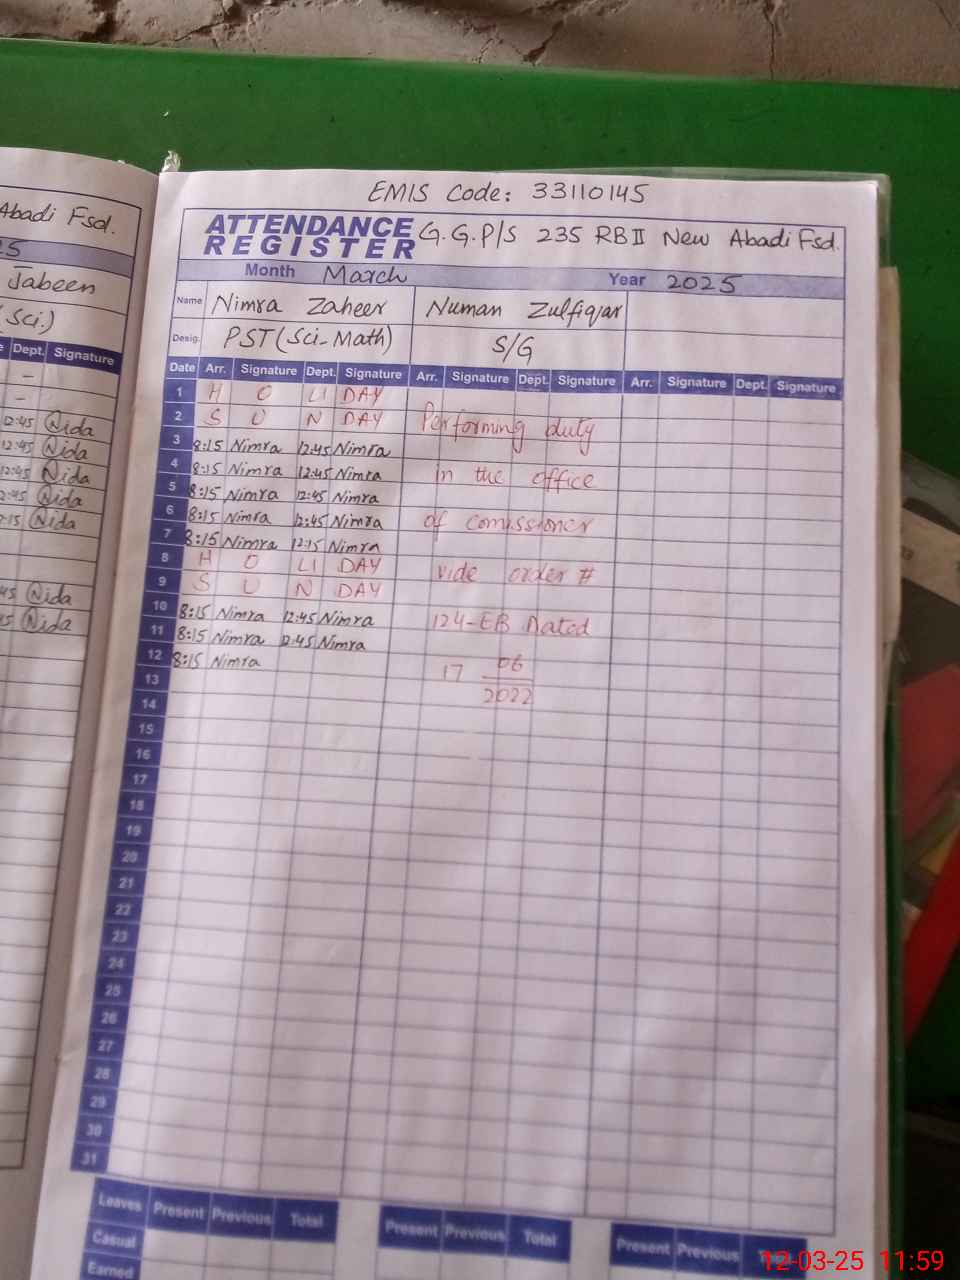 EMIS Code: 33110145
ATTENDANCE REGISTER G.G.P/S 235 RB II New Abadi Fsd.
Month March Year 2025
Name Nimra Zaheer Numan Zulfiqar
Desig. PST (Sci-Math) S/G
Date Arr. Signature Dept. Signature Arr. Signature Dept. Signature Arr. Signature Dept. Signature
1 H O LI DAY
2 S U N DAY Performing duty
3 8:15 Nimra 12:45 Nimra
4 8:15 Nimra 12:45 Nimra in the office
5 8:15 Nimra 12:45 Nimra
6 8:15 Nimra 12:45 Nimra of comissioner
7 8:15 Nimra 12:15 Nimra
8 H O LI DAY vide order #
9 S U N DAY
10 8:15 Nimra 12:45 Nimra 124-EB Dated
11 8:15 Nimra 12:45 Nimra
12 8:15 Nimra 17 06
13 2022
14
15
16
17
18
19
20
21
22
23
24
25
26
27
28
29
30
31
Leaves Present Previous Total Present Previous Total Present Previous
Casual
Earned
Abadi Fsd.
25
Jabeen
(Sci.)
Dept. Signature
-
-
12:45 Nida
12:45 Nida
12:45 Nida
2:45 Nida
2:15 Nida
45 Nida
45 Nida
12-03-25 11:59